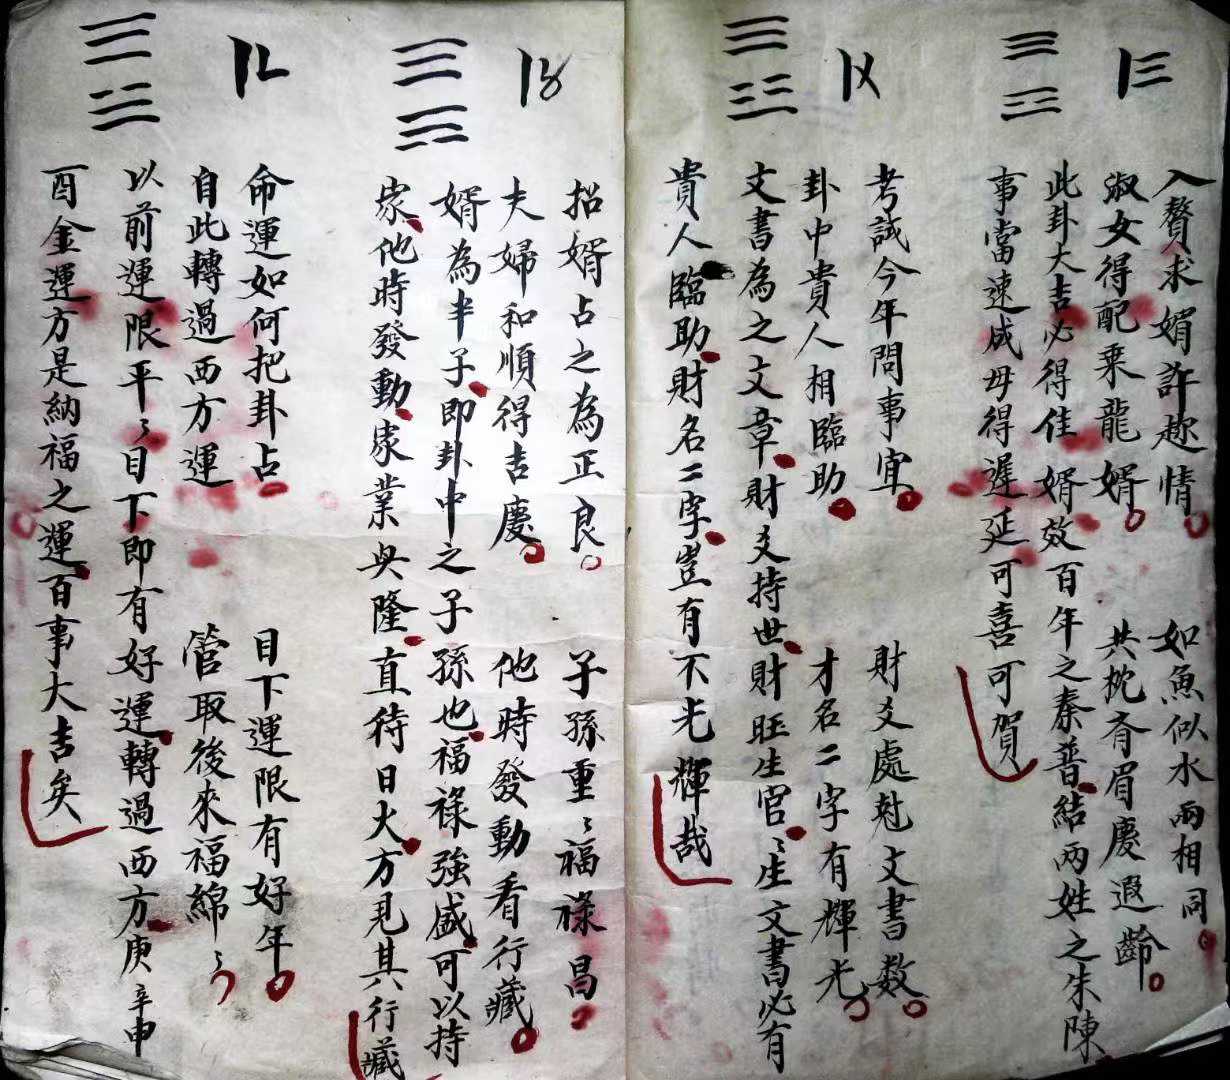 〡三
入贅求婿許趂情。如魚似水兩相同。
淑女得配乘龍婿。共枕齐眉慶遐齡。
此卦大吉必得佳婿效百年之秦晉結兩姓之朱陳
事當速成毋得遲延可喜可賀
〡〤
考試今年問事宜。財爻處尅文書数。
卦中貴人相臨助。才名二字有輝光。
文書為之文章財爻持世財旺生官〻生文書必有
貴人臨助財名二字豈有不光輝哉
〡〥
招婿占之為正良。子孫重〻福祿昌。
夫婦和順得吉慶。他時發動看行藏。
婿為半子即卦中之子孫也福祿強盛可以持
家他時發動家業兴隆直待日火方見其行藏
〡〦
命運如何把卦占。目下運限有好年。
自此轉過西方運 管取後來福綿〻。
以前運限平〻目下即有好運轉過西方庚辛申
酉金運方是納福之運百事大吉矣